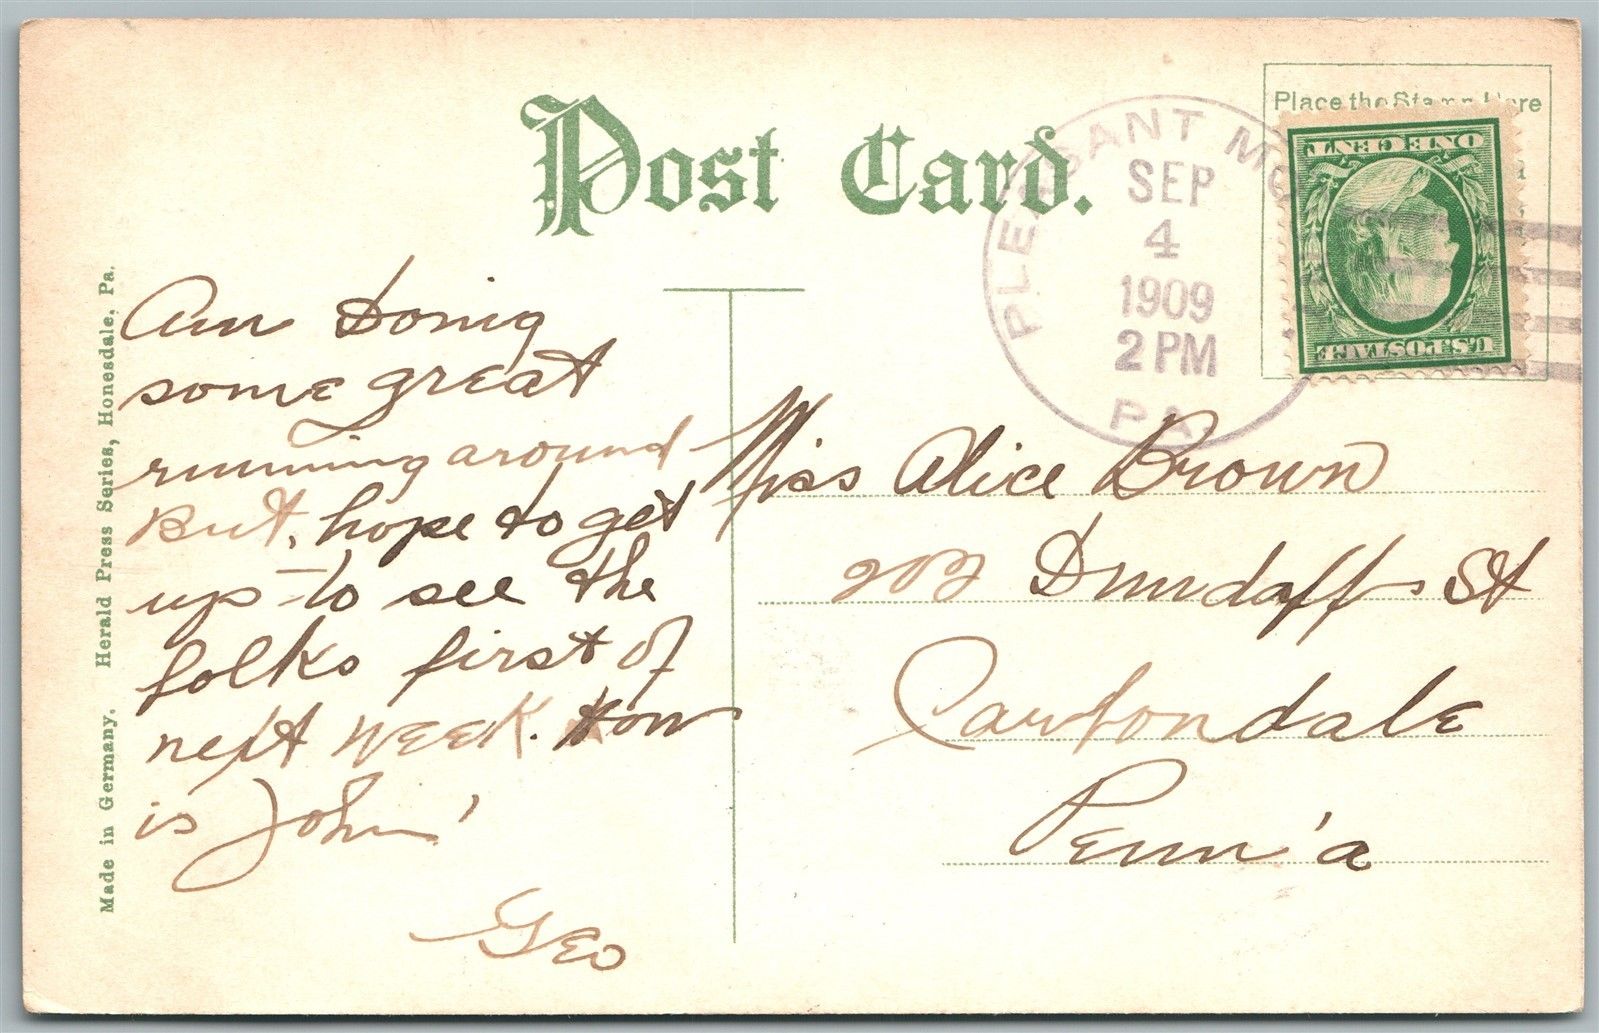 Post Card.
Place the Stamp Here
PLEASANT MO
SEP
4
1909
2 PM
PA.
ONE CENT
U.S. POSTAGE
Made in Germany. Herald Press Series, Honesdale, Pa.
Am doing
some great
running around
But, hope to get
up to see the
folks first of
next week. How
is John'
Geo
Miss Alice Brown
202 Dundaff St
Carbondale
Penn'a